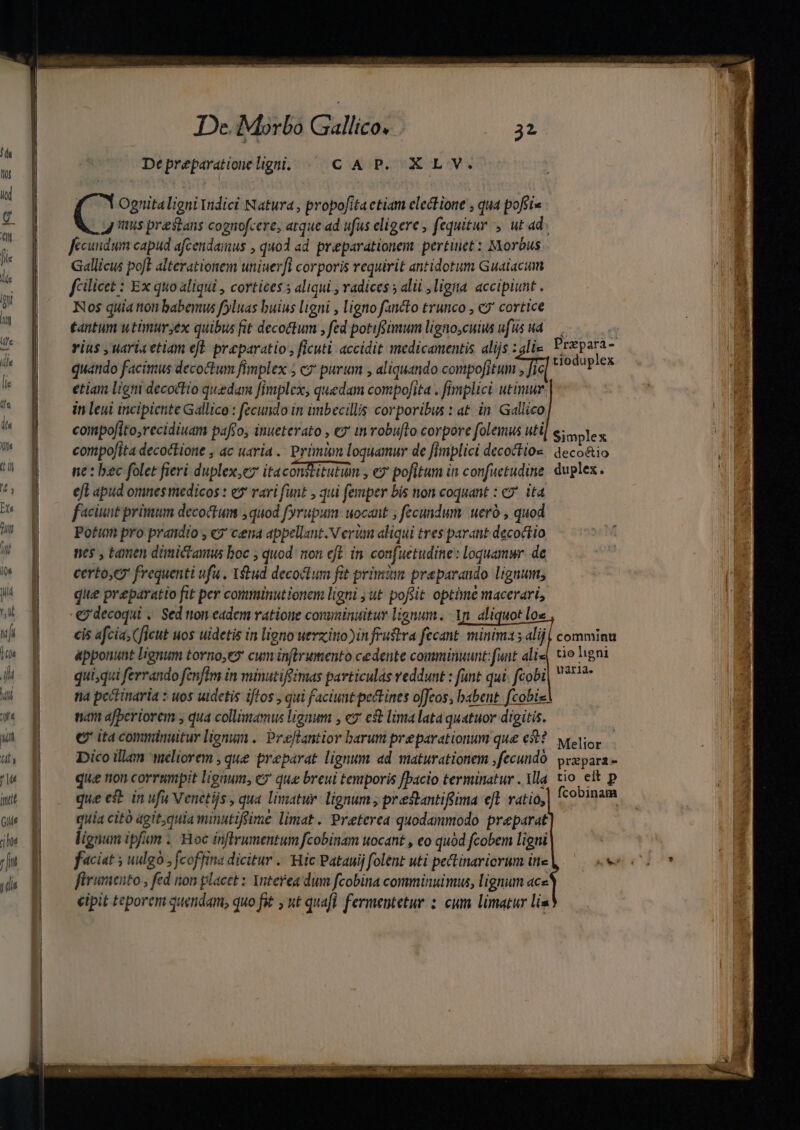 De Morbo Gallico. 32
De præparatione ligni. CAP. XLV.
COgnita ligni Indici Natura, proposita etiam electione, qua possi=
mus præstans cognoscere, atque ad usus eligere, sequitur, ut ad
secundum capud ascendamus, quod ad præparationem pertinet: Morbus
Gallicus post alterationem uniuersi corporis requirit antidotum Guaiacum
scilicet: Ex quo aliqui, cortices; aliqui, radices; alii, ligna accipiunt.
Nos quia non habemus syluas huius ligni, ligno sancto trunco, & cortice
tantum utimur, ex quibus fit decoctum, sed potissimum ligno, cuius usus ua
rius, uaria etiam est præparatio, sicuti accidit medicamentis alijs: ali=
quando facimus decoctum simplex, & purum, aliquando compositum, sic
etiam ligni decoctio quædam simplex, quædam composita. simplici utimur
in leui incipiente Gallico: secundo in imbecillis corporibus: at in Gallico
composito, recidiuam passo, inueterato, & in robusto corpore solemus uti
composita decoctione, ac uaria. Primum loquamur de simplici decoctio=
ne: hæc solet fieri duplex, & ita constitutum, & positum in consuetudine
est apud omnes medicos: & rari sunt, qui semper bis non coquant: & ita
faciunt primum decoctum, quod syrupum uocant, secundum uerò, quod
Potum pro prandio, & cæna appellant. Verùm aliqui tres parant decoctio
nes, tamen dimictamus hoc, quod non est in consuetudine: loquamur de
certo, & frequenti usu. Istud decoctum fit primùm præparando lignum,
quæ præparatio fit per comminutionem ligni, ut possit optimè macerari,
& decoqui. Sed non eadem ratione comminuitur lignum. In aliquot lo=
cis ascia, (sicut uos uidetis in ligno uerzino) in frustra secant minima; alij
apponunt lignum torno, & cum instrumento cædente comminuunt: sunt ali=
qui, qui serrando sensim in minutissimas particulas reddunt: sunt qui scobi
na pectinaria: uos uidetis istos, qui faciunt pectines osseos, habent scobi=
nam asperiorem, qua collimamus lignum, & est lima lata quatuor digitis.
& ita comminuitur lignum. Præstantior harum præparationum quæ est?
Dico illam meliorem, quæ præparat lignum ad maturationem, secundò
quæ non corrumpit lignum, & quæ breui temporis spacio terminatur. Illa
quæ est in usu Venetijs, qua limatur lignum, præstantissima est ratio,
quia citò agit, quia minutissimè limat. Præterea quodammodo præparat
lignum ipsum: Hoc instrumentum scobinam uocant, eo quòd scobem ligni
faciat; uulgò, scoffina dicitur. Hic Patauij solent uti pectinariorum in=
strumento, sed non placet: Interea dum scobina comminuimus, lignum ac=
cipit teporem quendam, quo fit, ut quasi fermentetur: cum limatur li=
Præpara-
tio duplex
Simplex
decoctio
duplex.
comminu
tio ligni
uaria.
Melior
præpara-
tio est p
scobinam